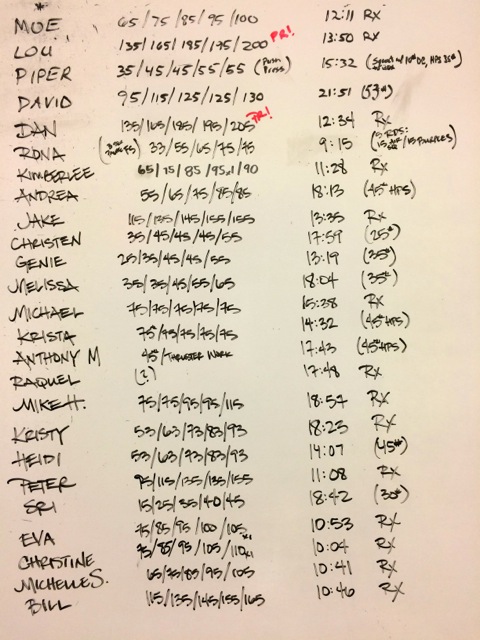 MOE 65/75/85/95/100 12:11 RX
LOU 135/165/185/175/200 PR! 13:50 RX
PIPER 35/45/45/55/55 (Push Press) 15:32
DAVID 95/115/125/125/130 21:51 (53#)
DAN 135/165/185/195/205 PR! 12:34 RX
RONA 33/55/65/75/75 9:15 (5 RDS:
KIMBERLEE 65/75/85/95x1/90 11:28 RX
ANDREA 55/65/75/85/85 18:13 (45# HPS)
JAKE 115/135/145/155/155 13:35 RX
CHRISTEN 35/45/45/45/55 17:59 (25#)
GENIE 25/35/45/45/55 13:19 (35#)
MELISSA 35/35/45/55/65 18:04 (35#)
MICHAEL 75/75/75/75/75 15:38 RX
KRISTA 75/75/75/75/75 14:32 (45# HPS)
ANTHONY M 45#/THRUSTER WORK 17:43 (45# HPS)
RAQUEL (?) 17:48 RX
MIKE H. 75/75/95/95/115 18:57 RX
KRISTY 53/63/73/83/93 18:25 RX
HEIDI 53/63/73/83/93 14:07 (45#)
PETER 95/115/135/135/155 11:08 RX
SRI 15/25/35/40/45 18:42 (30#)
EVA 75/85/95/100/105 x1 10:53 RX
CHRISTINE 75/85/95/105/110 x1 10:04 RX
MICHELLE S. 65/75/85/95/105 10:41 RX
BILL 115/135/145/155/165 10:46 RX